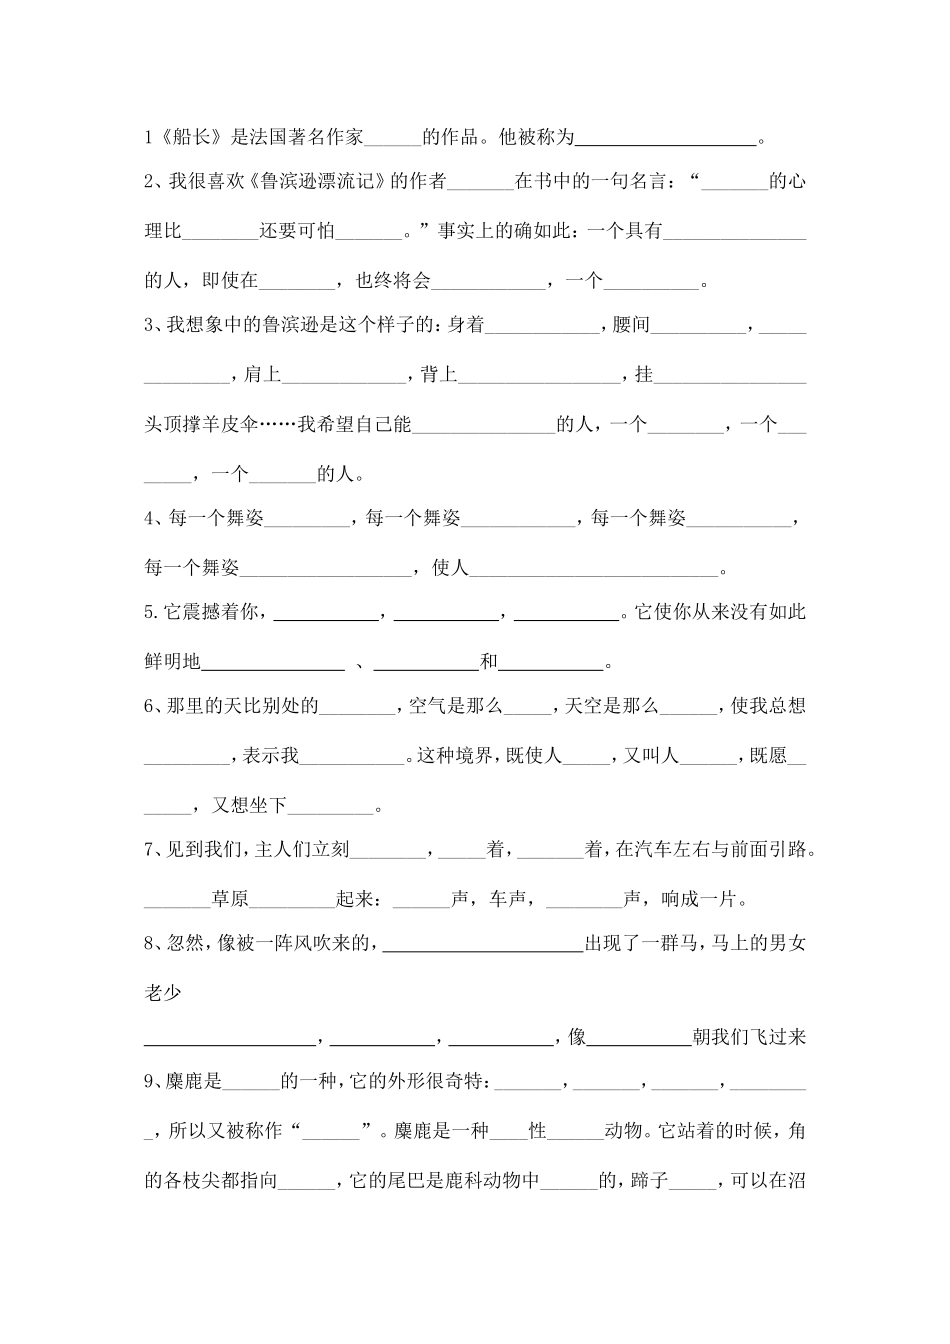 1《船长》是法国著名作家______的作品。他被称为___________________。
2、我很喜欢《鲁滨逊漂流记》的作者_______在书中的一句名言：“_______的心
理比________还要可怕_______。”事实上的确如此：一个具有_______________
的人，即使在________，也终将会____________，一个__________。
3、我想象中的鲁滨逊是这个样子的：身着____________，腰间__________，_____
_________，肩上_____________，背上_________________，挂________________
头顶撑羊皮伞……我希望自己能_______________的人，一个________，一个___
_____，一个_______的人。
4、每一个舞姿_________，每一个舞姿____________，每一个舞姿___________，
每一个舞姿__________________，使人__________________________。
5.它震撼着你，___________，___________，___________。它使你从来没有如此
鲜明地_______________ 、___________和___________。
6、那里的天比别处的________，空气是那么_____，天空是那么______，使我总想
_________，表示我___________。这种境界，既使人_____，又叫人______，既愿__
_____，又想坐下_________。
7、见到我们，主人们立刻________，_____着，_______着，在汽车左右与前面引路。
_______草原_________起来：______声，车声，________声，响成一片。
8、忽然，像被一阵风吹来的，_____________________出现了一群马，马上的男女
老少
__________________，___________，___________，像___________朝我们飞过来
9、麋鹿是______的一种，它的外形很奇特：_______，_______，_______，________
_，所以又被称作“______”。麋鹿是一种____性______动物。它站着的时候，角
的各枝尖都指向______，它的尾巴是鹿科动物中______的，蹄子_____，可以在沼